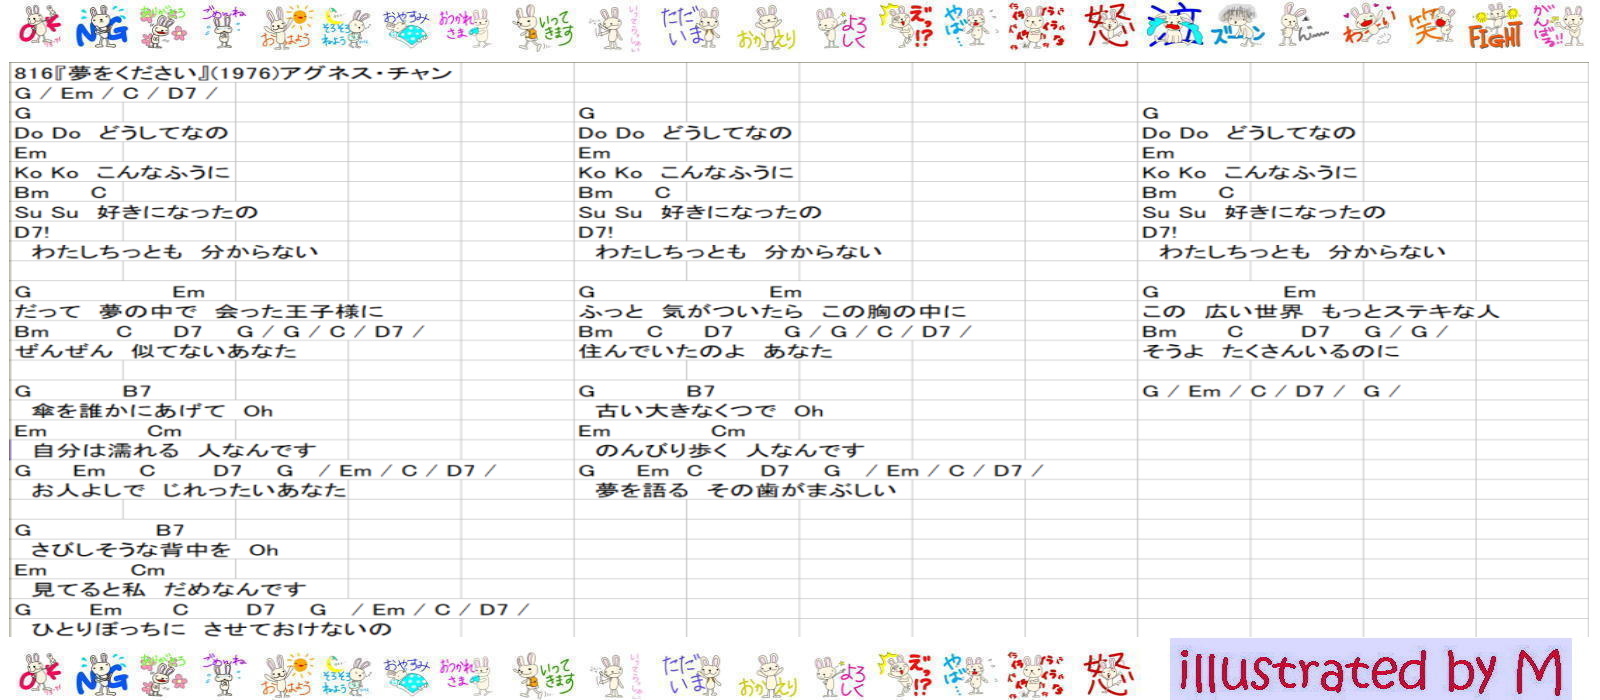 OK NG ありがとう ごめんね おはよう そろそろねよう おやすみ おつかれさま いってきます いってらっしゃい ただいま おかえり よろしく えっ!? やば… イライライライライラ 怒 泣 ズーン ん… わーい 笑 FIGHT がんばる!!
816『夢をください』(1976)アグネス・チャン
G / Em / C / D7 /
G
Do Do どうしてなの
Em
Ko Ko こんなふうに
Bm C
Su Su 好きになったの
D7!
わたしちっとも 分からない
G Em
だって 夢の中で 会った王子様に
Bm C D7 G / G / C / D7 /
ぜんぜん 似てないあなた
G B7
傘を誰かにあげて Oh
Em Cm
自分は濡れる 人なんです
G Em C D7 G / Em / C / D7 /
お人よしで じれったいあなた
G B7
さびしそうな背中を Oh
Em Cm
見てると私 だめなんです
G Em C D7 G / Em / C / D7 /
ひとりぼっちに させておけないの
G
Do Do どうしてなの
Em
Ko Ko こんなふうに
Bm C
Su Su 好きになったの
D7!
わたしちっとも 分からない
G Em
ふっと 気がついたら この胸の中に
Bm C D7 G / G / C / D7 /
住んでいたのよ あなた
G B7
古い大きなくつで Oh
Em Cm
のんびり歩く 人なんです
G Em C D7 G / Em / C / D7 /
夢を語る その歯がまぶしい
G
Do Do どうしてなの
Em
Ko Ko こんなふうに
Bm C
Su Su 好きになったの
D7!
わたしちっとも 分からない
G Em
この 広い世界 もっとステキな人
Bm C D7 G / G /
そうよ たくさんいるのに
G / Em / C / D7 / G /
OK NG ありがとう ごめんね おはよう そろそろねよう おやすみ おつかれさま いってきます いってらっしゃい ただいま おかえり よろしく えっ!? やば… イライライライライラ 怒
illustrated by M